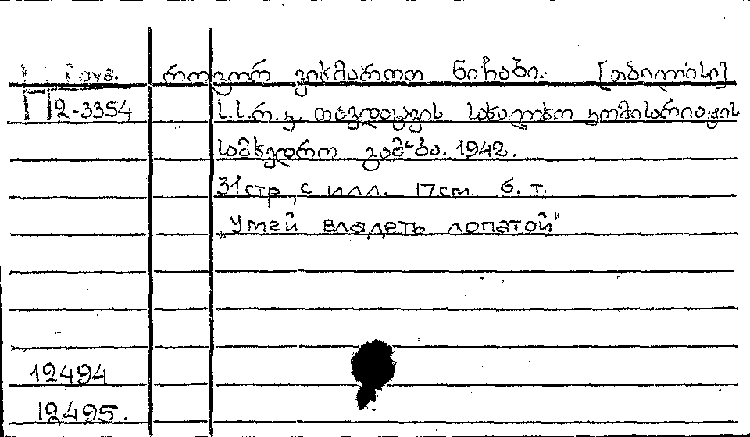 როგორ ვიხმაროთ ნიჩაბი. [თბილისი]
П2-3354 ს.ს.რ.კ. თავდაცვის სახალხო კომისარიატის
სამხედრო გამ-ბა. 1942.
31стр. с илл. 17см. б. т.
„Умей владеть лопатой"
12494
12495.